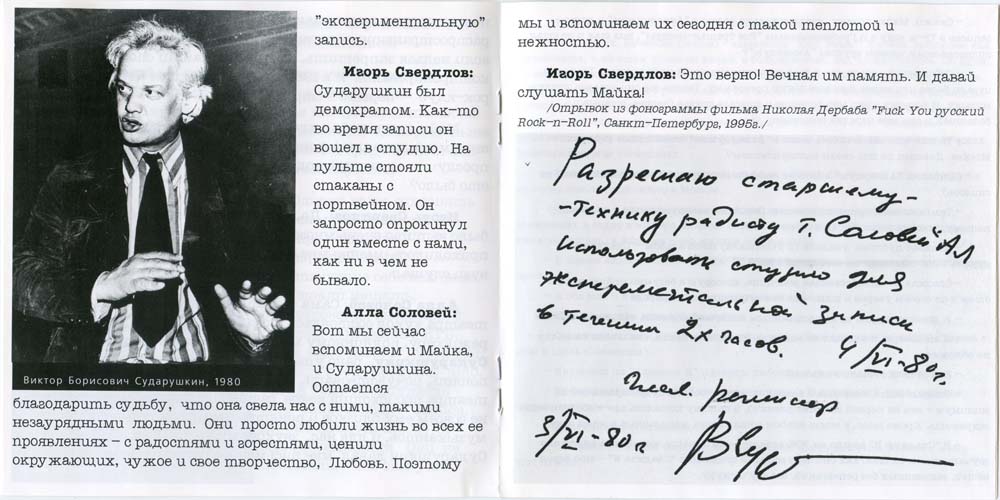 "экспериментальную"
запись.
Игорь Свердлов:
Сударушкин был
демократом. Как-то
во время записи он
вошел в студию. На
пульте стояли
стаканы с
портвейном. Он
запросто опрокинул
один вместе с нами,
как ни в чем не
бывало.
Алла Соловей:
Вот мы сейчас
вспоминаем и Майка,
и Сударушкина.
Остается
Виктор Борисович Сударушкин, 1980
благодарить судьбу, что она свела нас с ними, такими
незаурядными людьми. Они просто любили жизнь во всех ее
проявлениях – с радостями и горестями, ценили
окружающих, чужое и свое творчество, Любовь. Поэтому
мы и вспоминаем их сегодня с такой теплотой и
нежностью.
Игорь Свердлов: Это верно! Вечная им память. И давай
слушать Майка!
/Отрывок из фонограммы фильма Николая Дербаба "Fuck You русский
Rock-n-Roll", Санкт-Петербург, 1995г./
Разрешаю старшему-
-технику радисту т. Соловей Ал
использовать студию для
эксперементальной записи
в течении 2х часов.
4/VI-80г.
Глав. режиссер
3/VI-80г